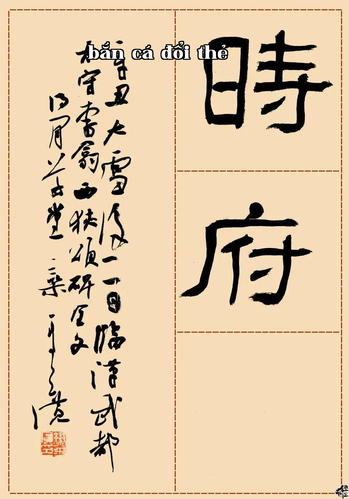 bắn cá đổi thẻ
時
府
辛丑大雪後日臨漢武都
太守李翕西狹頌全文
草堂